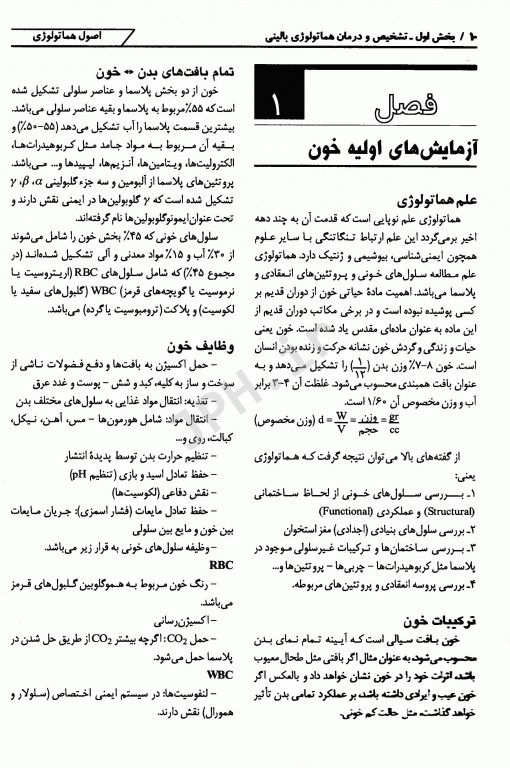 ۱۰ / بخش اول ـ تشخیص و درمان هماتولوژی بالینی
اصول هماتولوژی
فصل
۱
آزمایش‌های اولیه خون
علم هماتولوژی
هماتولوژی علم نوپایی است که قدمت آن به چند دهه
اخیر برمی‌گردد این علم ارتباط تنگاتنگی با سایر علوم
همچون ایمنی‌شناسی، بیوشیمی و ژنتیک دارد. هماتولوژی
علم مطالعه سلول‌های خونی و پروتئین‌های انعقادی و
پلاسما می‌باشد. اهمیت مادهٔ حیاتی خون از دوران قدیم بر
کسی پوشیده نبوده است و در برخی مکاتب دوران قدیم از
این ماده به عنوان ماده‌ای مقدس یاد شده است. خون یعنی
حیات و زندگی و گردش خون نشانه حرکت و زنده بودن انسان
است. خون ۸-۷٪ وزن بدن (۱/۱۲) را تشکیل می‌دهد و به
عنوان بافت همبندی محسوب می‌شود. غلظت آن ۴-۳ برابر
آب و وزن مخصوص آن ۱/۶۰ است.
(وزن مخصوص) d = W/V = وزن/حجم = gr/cc
از گفته‌های بالا می‌توان نتیجه گرفت که هماتولوژی
یعنی:
۱ـ بررسی سلول‌های خونی از لحاظ ساختمانی
(Structural) و عملکردی (Functional)
۲ـ بررسی سلول‌های بنیادی (اجدادی) مغز استخوان
۳ـ بررسی ساختمان‌ها و ترکیبات غیرسلولی موجود در
پلاسما مثل کربوهیدرات‌ها – چربی‌ها – پروتئین‌ها و...
۴ـ بررسی پروسه انعقادی و پروتئین‌های مربوطه.
ترکیبات خون
خون بافت سیالی است که آیینه تمام نمای بدن
محسوب می‌شود، به عنوان مثال اگر بافتی مثل طحال معیوب
باشد، اثرات خود را در خون نشان خواهد داد و بالعکس اگر
خون عیب و ایرادی داشته باشد، بر عملکرد تمامی بدن تأثیر
خواهد گذاشت، مثل حالت کم خونی.
تمام بافت‌های بدن ↔ خون
خون از دو بخش پلاسما و عناصر سلولی تشکیل شده
است که ۵۵٪ مربوط به پلاسما و بقیه عناصر سلولی می‌باشد.
بیشترین قسمت پلاسما را آب تشکیل می‌دهد (۵۵-۵۰٪) و
بقیه آن مربوط به مواد جامد مثل کربوهیدرات‌ها،
الکترولیت‌ها، ویتامین‌ها، آنزیم‌ها، لیپیدها و... می‌باشد.
پروتئین‌های پلاسما از آلبومین و سه جزء گلبولینی α، β، γ
تشکیل شده است که γ گلوبولین‌ها در ایمنی نقش دارند و
تحت عنوان ایمونوگلوبولین‌ها نام گرفته‌اند.
سلول‌های خونی که ۴۵٪ بخش خون را شامل می‌شوند
از ۳۰٪ آب و ۱۵٪ مواد معدنی و آلی تشکیل شده‌اند (در
مجموع ۴۵٪) که شامل سلول‌های RBC (اریتروسیت یا
نرموسیت یا گویچه‌های قرمز) WBC (گلبول‌های سفید یا
لکوسیت) و پلاکت (ترومبوسیت یا گرده) می‌باشد.
وظایف خون
– حمل اکسیژن به بافت‌ها و دفع فضولات ناشی از
سوخت و ساز به کلیه، کبد و شش – پوست و غدد عرق
– تغذیه: انتقال مواد غذایی به سلول‌های مختلف بدن
– انتقال مواد: شامل هورمون‌ها – مس، آهن، نیکل،
کبالت، روی و...
– تنظیم حرارت بدن توسط پدیدهٔ انتشار
– حفظ تعادل اسید و بازی (تنظیم pH)
– نقش دفاعی (لکوسیت‌ها)
– حفظ تعادل مایعات (فشار اسمزی): جریان مایعات
بین خون و مایع بین سلولی
– وظیفه سلول‌های خونی به قرار زیر می‌باشد.
RBC
– رنگ خون مربوط به هموگلوبین گلبول‌های قرمز
می‌باشد.
– اکسیژن‌رسانی
– حمل CO₂: اگرچه بیشتر CO₂ از طریق حل شدن در
پلاسما حمل می‌شود.
WBC
– لنفوسیت‌ها: در سیستم ایمنی اختصاص (سلولار و
همورال) نقش دارند.